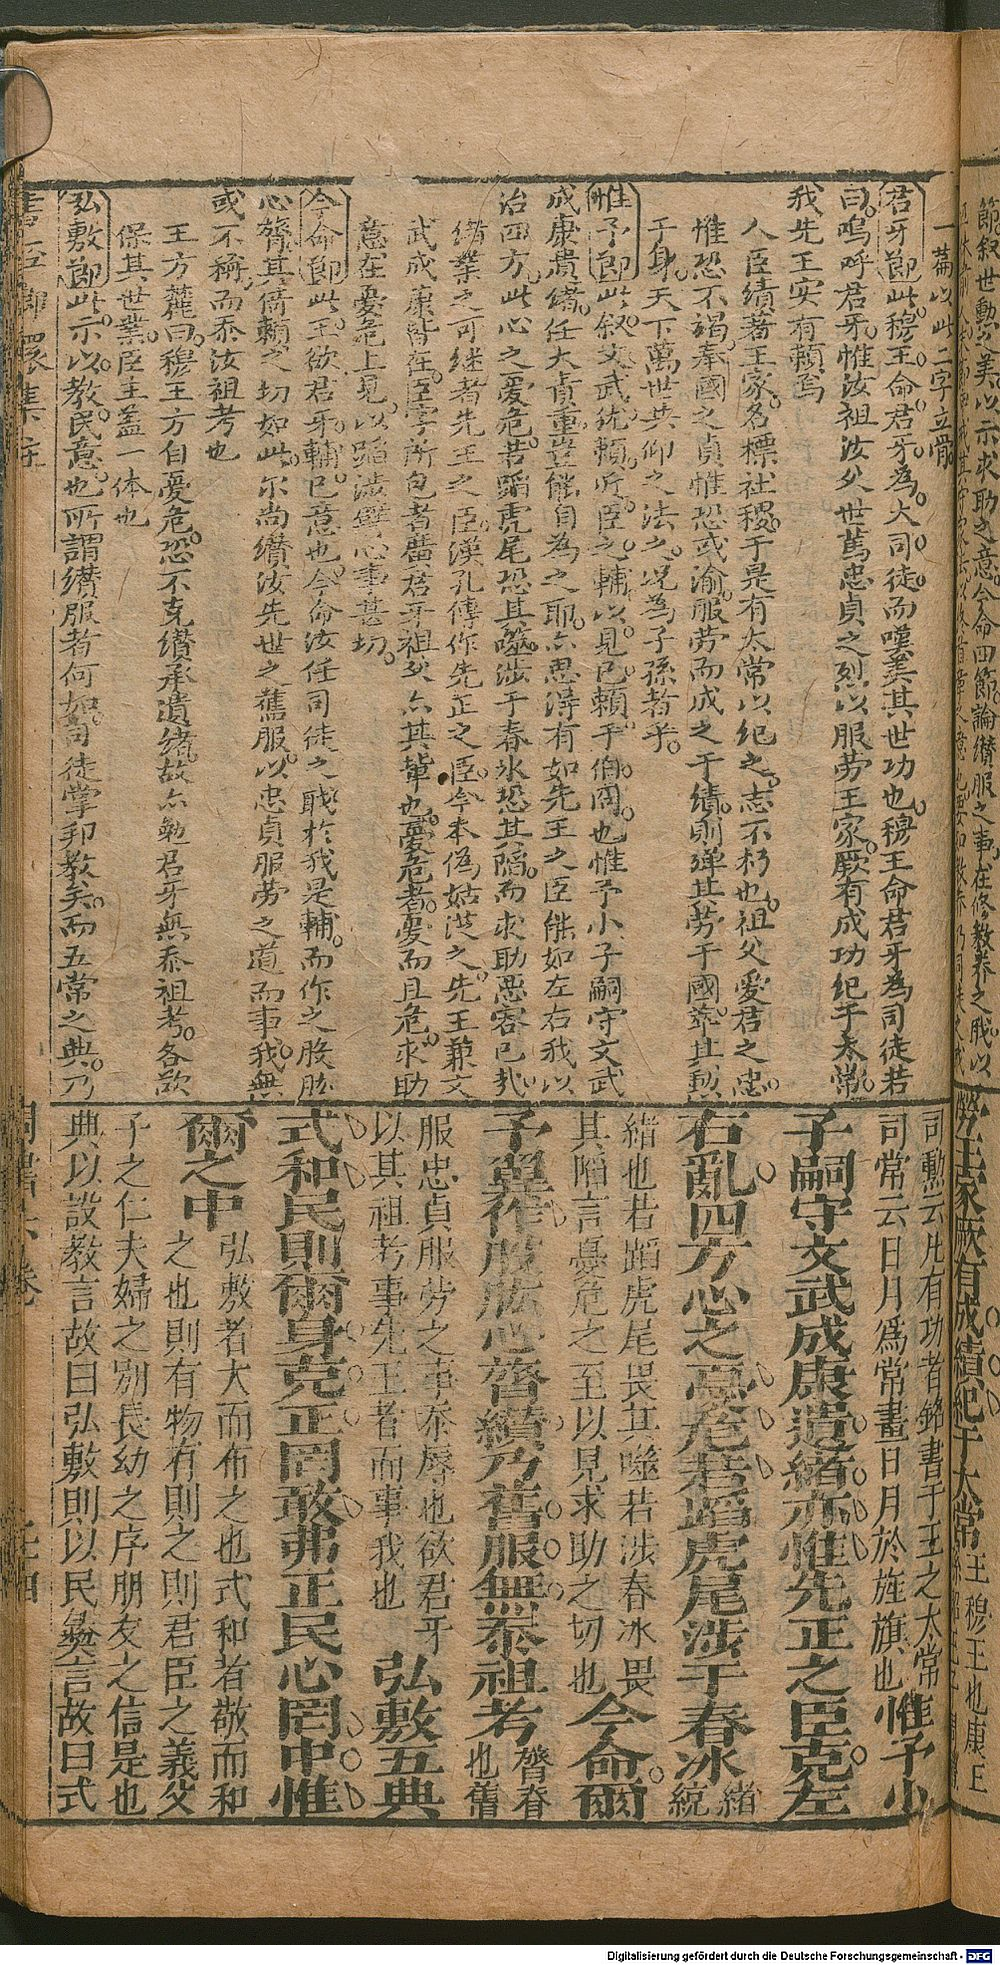 一篇以此二字立骨
君牙節此穆王命君牙為大司徒而嘆美其世功也穆王命君牙為司徒若
曰嗚呼君牙惟汝祖汝父世篤忠貞之烈以服劳王家厥有成功纪于太常
我先王实有賴焉
人臣績著王家名標社稷于是有太常以纪之志不朽也祖父愛君之忠
惟恐不竭奉國之貞惟恐或渝服劳而成之于績則殫其劳于國
于身天下萬世共仰之法之况為子孫者乎
惟予節此叙文武統賴近臣之輔以見已賴于伯冏也惟予小子嗣守文武
成康遺緒任大責重豈能自為之耶亦思得有如先王之臣能如左右我以
治四方此心之憂危若蹈虎尾恐其噬涉于春氷恐其陷而求助思容已哉
緒業之可继者先王之臣漢孔傳作先正之臣今本偽姑從之先王兼文
武成康皆在臣字所包者廣君牙祖父亦其輩也憂危者憂而且危求助
意在憂危上見以蹈涉譬心事甚切
今命節此王欲君牙輔已意也今命汝任司徒之职於我是輔而作之股肱
心膂其倚賴之切如此尔尚纘汝先世之舊服以忠貞服劳之道而事我無
或不稱而忝汝祖考也
王方麓曰穆王方自憂危恐不克纘承遺緒故亦勉君牙無忝祖考各欲
保其世業臣主盖一体也
弘敷節此示以教民意也所謂纘服者何如司徒掌邦教矣而五常之典乃
司勳云凡有功者銘書于王之太常
司常云日月為常畫日月於旌旗也 惟予小
子嗣守文武成康遺緒亦惟先正之臣克左
右亂四方心之憂危若蹈虎尾涉于春冰 緒統
緒也若蹈虎尾畏其噬若涉春冰畏
其陷言憂危之至以見求助之切也 今命爾
予翼作股肱心膂纘乃舊服無忝祖考 膂脊也舊
服忠貞服勞之事忝辱也欲君牙
以其祖考事先王者而事我也 弘敷五典
式和民則爾身克正罔敢弗正民心罔中惟
爾之中 弘敷者大而布之也式和者敬而和
之也則有物有則之則君臣之義父
子之仁夫婦之别長幼之序朋友之信是也
典以設教言故曰弘敷則以民彝言故曰式
Digitalisierung gefördert durch die Deutsche Forschungsgemeinschaft - DFG